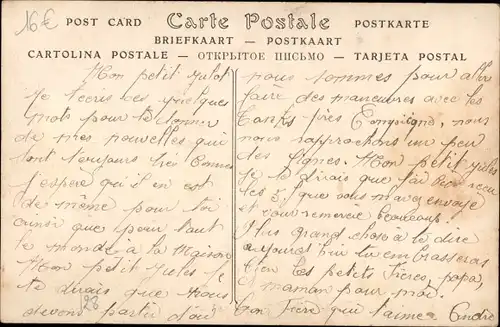 16 €
POST CARD
Carte Postale
POSTKARTE
BRIEFKAART — POSTKAART
CARTOLINA POSTALE — ОТКРЫТОЕ ПИСЬМО — TARJETA POSTAL
Mon petit Julot
Je t'écris ces quelques
mots pour te donner
de mes nouvelles qui
sont toujours très bonnes
j'espère qu'il en est
de même pour toi
ainsi que pour tout
le monde à la maison
Mon petit Jules je
te dirais que nous
devons partir d'où
28
nous sommes pour aller
faire des manœuvres avec les
Tanks près Compiègne, nous
nous rapprochons un peu
des lignes. Mon petit Jules
je te dirais que j'ai bien reçu
les 5 f que vous m'avez envoyé
et vous remercie beaucoup.
Plus grand chose à te dire
aujourd'hui tu embrasseras
bien les petits frères, papa,
maman pour moi.
Ton frère qui t'aime André